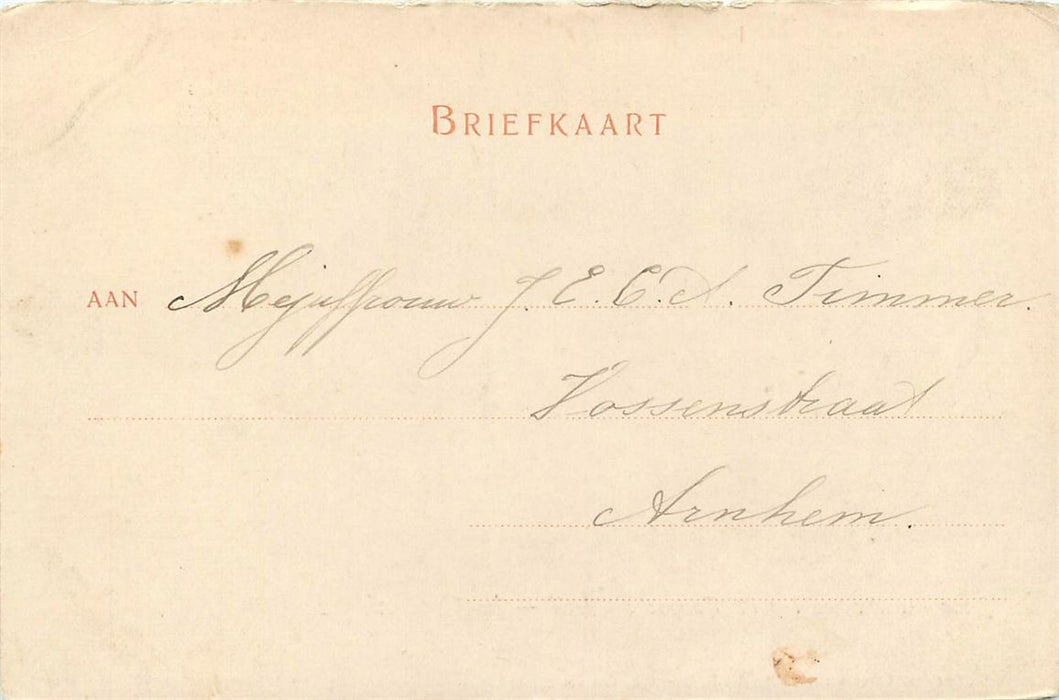 BRIEFKAART
AAN Mejuffrouw J. E. C. A. Timmer.
Vossenstraat
Arnhem.